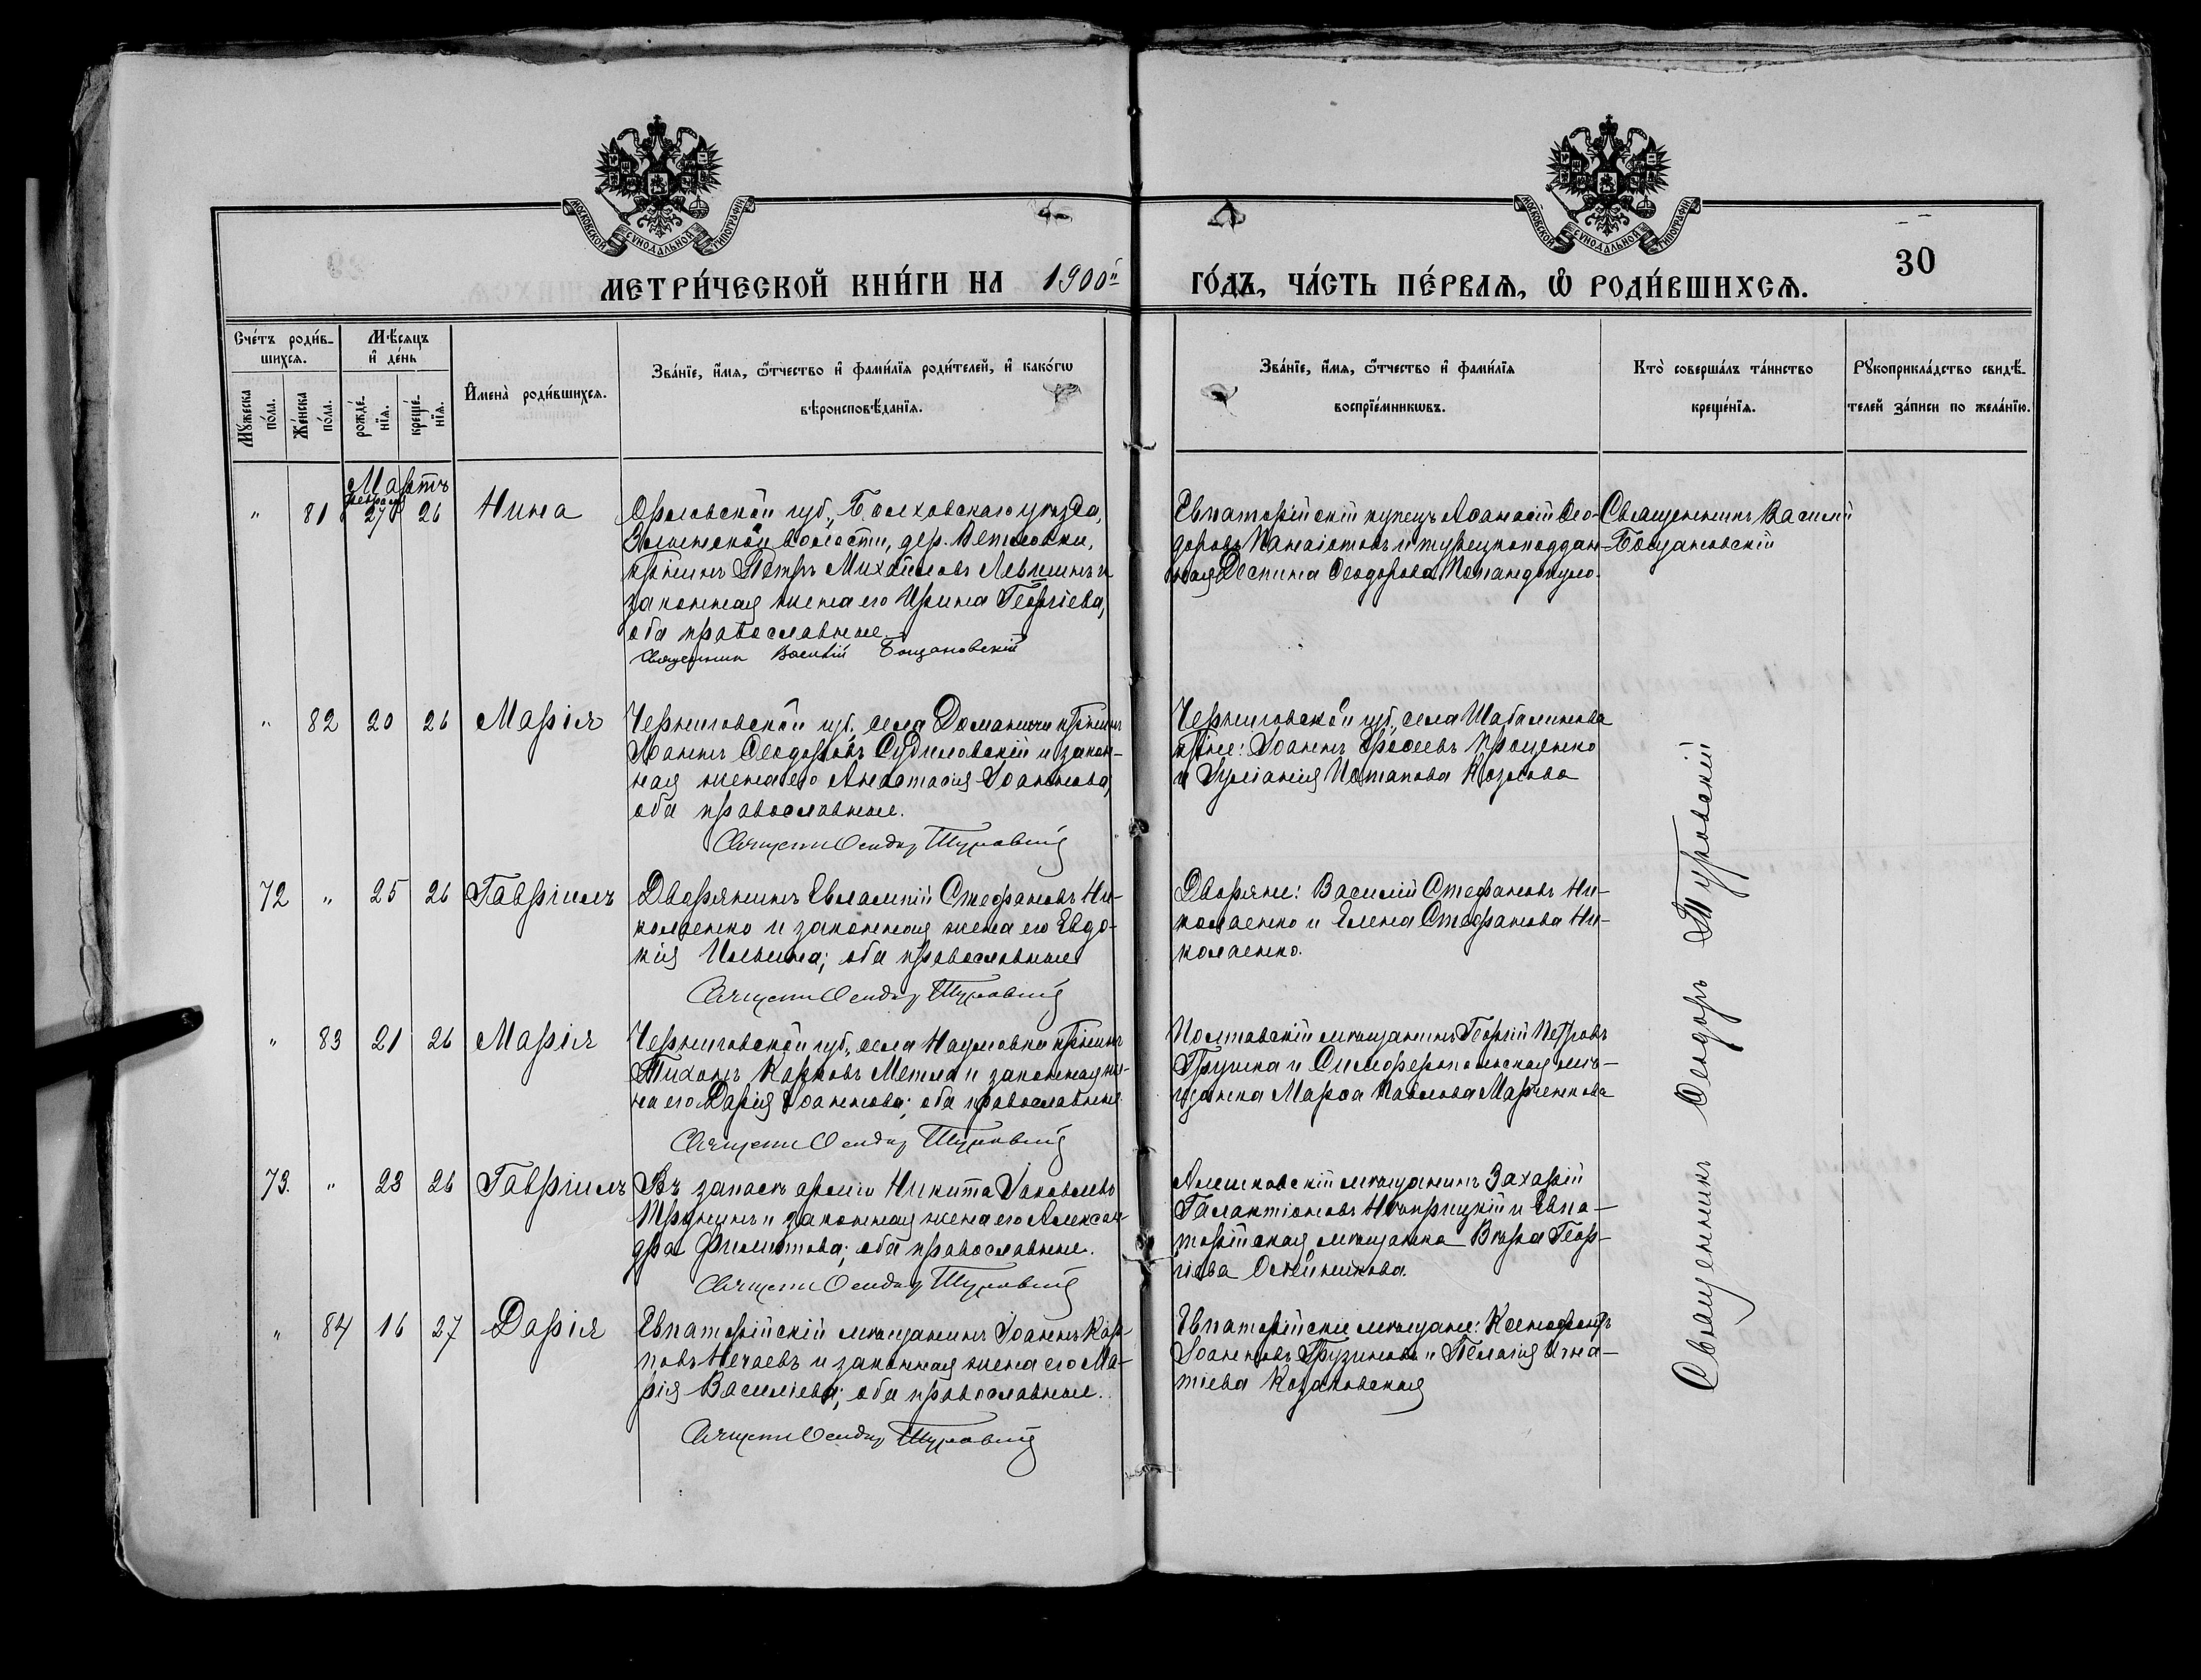 МОСКОВСКОЙ СѴНОДАЛЬНОЙ ТИПОГРАФІИ
МОСКОВСКОЙ СѴНОДАЛЬНОЙ ТИПОГРАФІИ
30
МЕТРИ́ЧЕСКОЙ КНИ́ГИ НА 1900й ГО́ДЪ, ЧА́СТЬ ПЕ́РВАѦ, Ѡ҆ РОДИ́ВШИХСѦ.
Сче́тъ роди́в-
шихсѧ.
Мꙋ́жеска по́ла.
Же́нска по́ла.
Мѣ́сяцъ
и҆ де́нь
рожде́-
нїѧ.
креще́-
нїѧ.
И҆мена̀ роди́вшихсѧ.
Зва́нїе, и҆́мѧ, ѻ҆́тчество и҆ фами́лїѧ роди́телей, и҆ како́гѡ
вѣроисповѣ́данїѧ.
Зва́нїе, и҆́мѧ, ѻ҆́тчество и҆ фами́лїѧ
воспрїе́мникѡвъ.
Кто̀ соверша́лъ та́инство
креще́нїѧ.
Рꙋкоприкла́дство свидѣ́-
телей за́писи по жела́нїю.
Мартъ
" 81 февраля 27 26 Нина
Орловской губ., Болховскаго уѣзда,
волости, дер. Ветловки,
кр–нинъ Петръ Михайловъ Левшинъ и
законная жена его Ирина Георгіева,
оба православные.
Священник Василій Бощановскій
Евпаторійскій купецъ Аѳанасій Ѳео-
доровъ Панаіотовъ и турецкоподдан-
ная Деспина Ѳеодорова
Священникъ Василій
Бощановскій
" 82 20 26 Марія
Черниговской губ., села Доманичи кр–нинъ
Іоаннъ Ѳеодоровъ Судиловскій и закон-
ная жена его Анастасія Іоаннова,
оба православные.
Священн Ѳеодор Туровскій
Черниговской губ., села Шабалинова
кр–не: Іоаннъ Проценко
и Іуліанія Потапова Козлова
72 " 25 26 Гавріилъ
Дворянинъ Евлампій Стефановъ Ни-
колаенко и законная жена его Евдо-
кія Ильина; оба православные
Священн Ѳеодор Туровскій
Дворяне: Василій Стефановъ Ни-
колаенко и Елена Стефанова Ни-
колаенко.
" 83 21 26 Марія
Черниговской губ., села Наумовка кр–нинъ
Тихонъ Карповъ Метла и законная же-
на его Дарія Іоаннова; оба православные
Священн Ѳеодор Туровскій
Полтавскій мѣщанинъ Георгій Петровъ
Грушка и Симферопольская мѣ-
щанка Марѳа Павлова Марченкова
73. " 23 26 Гавріилъ
Въ запасѣ арміи Никита Іаковлевъ
и законная жена его Алексан-
дра Филиппова; оба православные.
Священн Ѳеодор Туровскій
Алешковскій мѣщанинъ Захарій
Галактіоновъ и Евпа-
торійская мѣщанка Вѣра Геор-
гіева Олейникова.
" 84 16 27 Дарія
Евпаторійскій мѣщанинъ Іоаннъ Кар-
повъ Нечаевъ и законная жена его Ма-
рія Василіева; оба православные.
Священн Ѳеодор Туровскій
Евпаторійскіе мѣщане: Ксенофонтъ
Іоанновъ Грузиновъ и Пелагія Игна-
тіева Козаковская
Священникъ Ѳеодоръ Туровскій